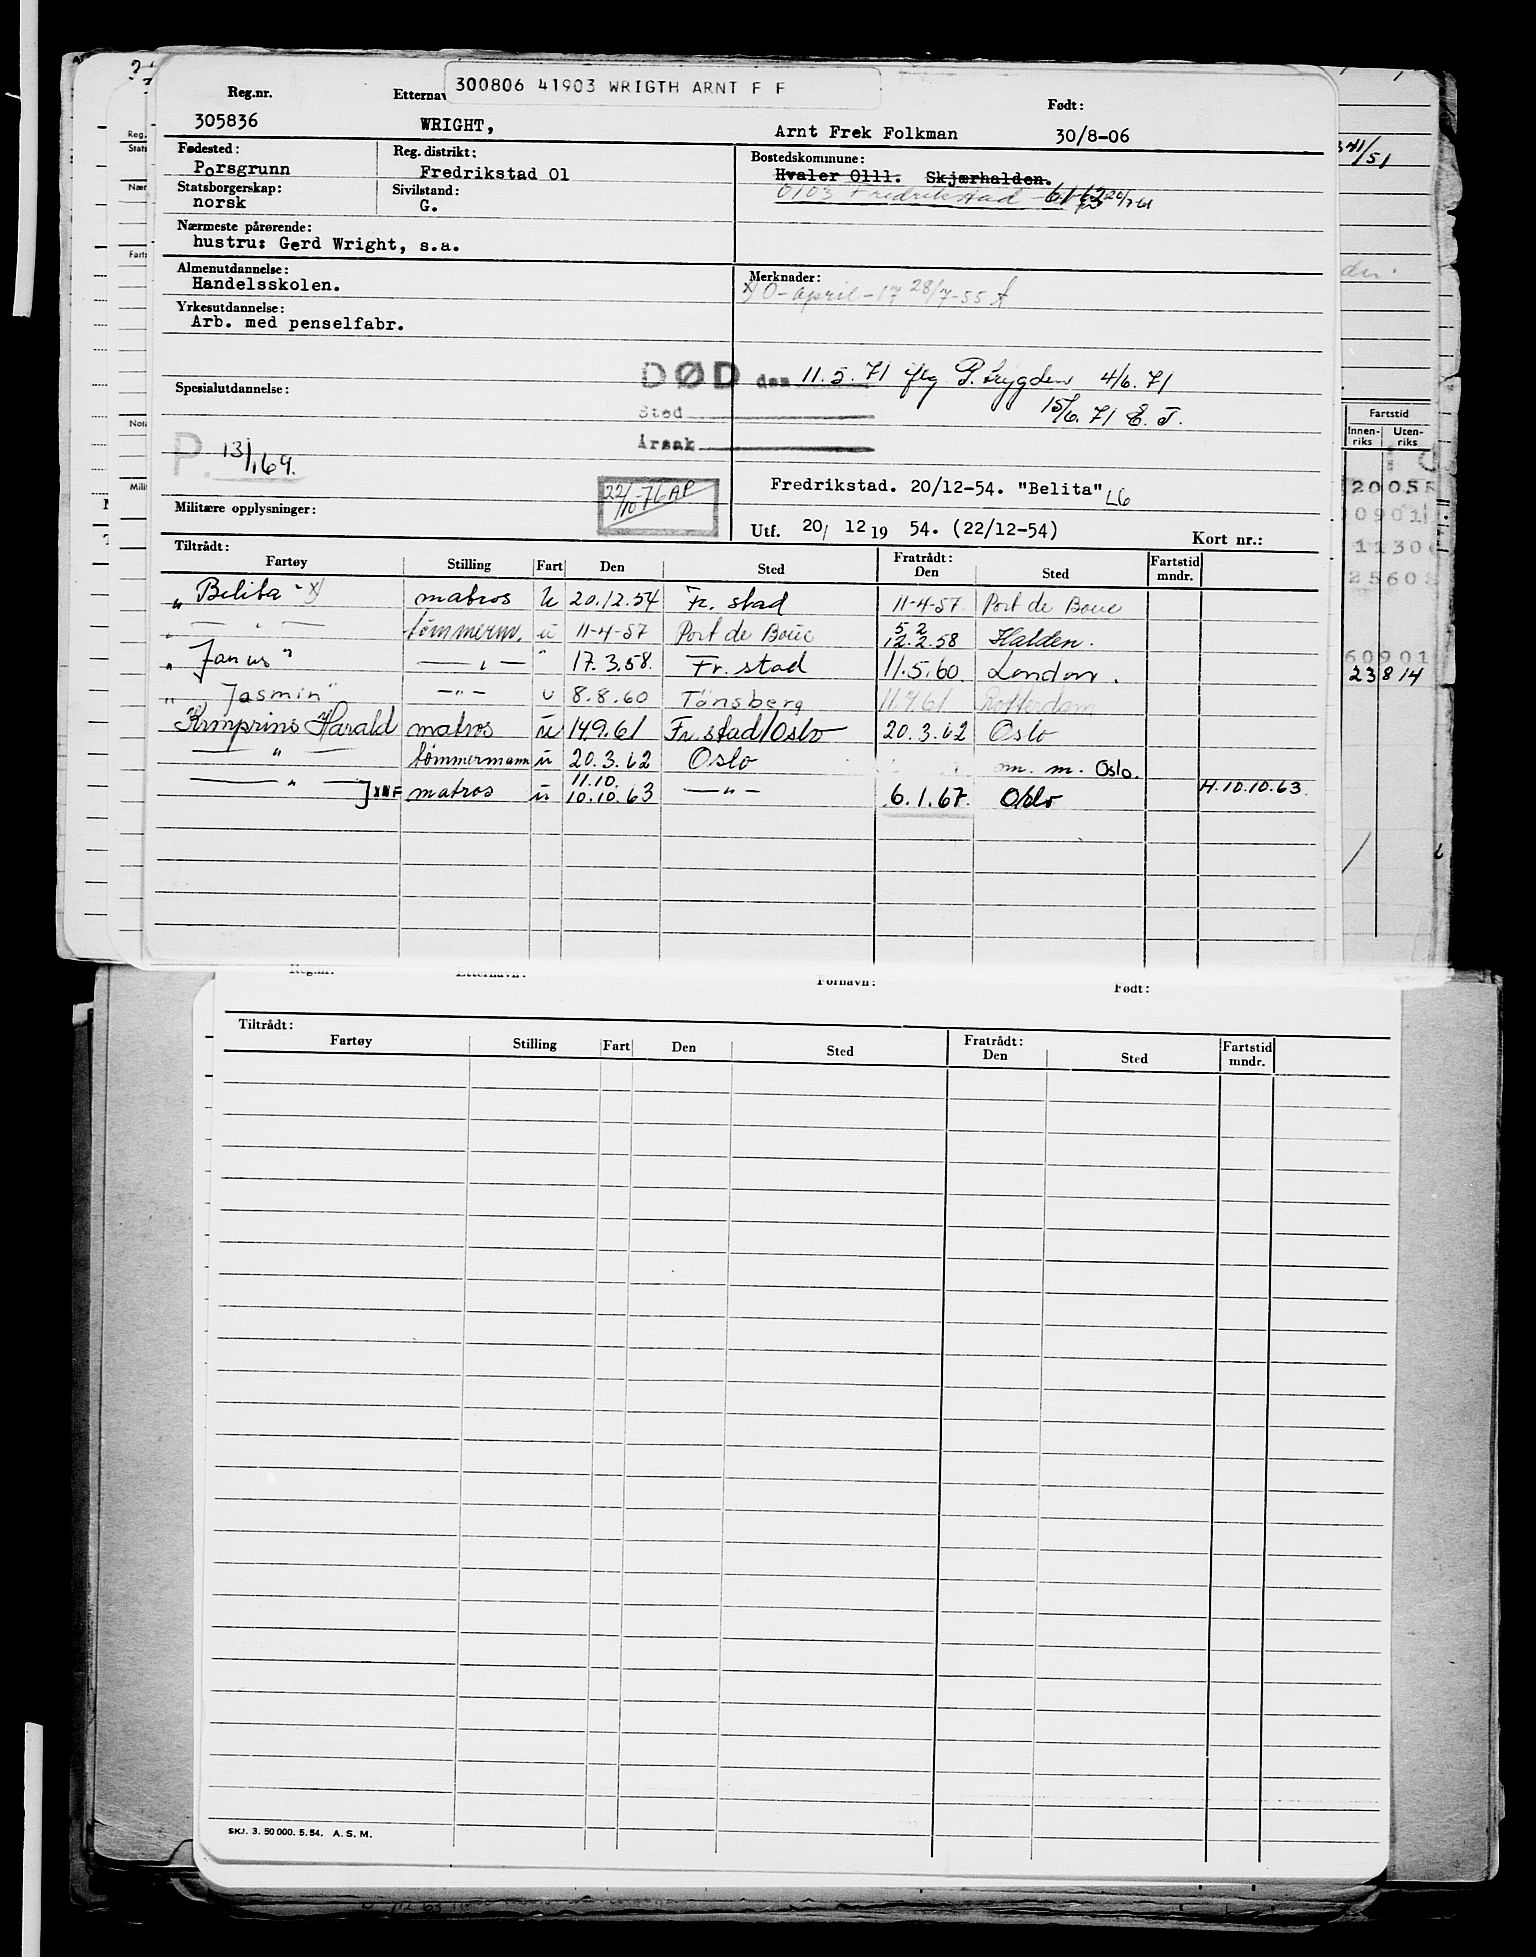 300806 41903 WRIGTH ARNT F F
Reg.nr. Født:
305836 WRIGHT, Arnt Frek Folkman 30/8-06
Fødested: Reg. distrikt: Bostedskommune:
Porsgrunn Fredrikstad 01 Hvaler 0111. Skjærhalden.
Statsborgerskap: Sivilstand: 0103 Fredrikstad
norsk G.
Nærmeste pårørende:
hustru: Gerd Wright, s.a.
Almenutdannelse: Merknader:
Handelsskolen. x) O-april-17 28/7-55
Yrkesutdannelse:
Arb. med penselfabr.
DØD den 11.5.71 4/6.71
Spesialutdannelse: 15/6.71 E.J.
Sted
Årsak
P. 13/1 69.
22/10-76 AP Fredrikstad. 20/12-54. "Belita" L6
Militære opplysninger:
Utf. 20/ 12 19 54. (22/12-54) Kort nr.:
Tiltrådt: Fratrådt: Fartstid
Fartøy Stilling Fart Den Sted Den Sted mndr.
"Belita" x) matros u 20.12.54 Fr. stad 11-4-57 Port de Bouc
— " — tømmerm. u 11-4-57 Port de Bouc 12.2.58 Halden.
"Janus" — " — " 17.3.58. Fr. stad 11.5.60 London.
"Jasmin" — " — u 8.8.60 Tønsberg 11.7.61 Rotterdam
Kronprins Harald matros u 14.9.61 Fr.stad/Oslo 20.3.62 Oslo
— " — tømmermann u 20.3.62 Oslo m. m. Oslo.
— " — matros u 11.10. 10.10.63 — " — 6.1.67. Oslo H.10.10.63.
Fartstid
Innen-riks Uten-riks
23 8 14
Reg.nr. Etternavn: Fornavn: Født:
Tiltrådt: Fratrådt: Fartstid
Fartøy Stilling Fart Den Sted Den Sted mndr.
SKJ. 3. 50 000. 5. 54. A. S. M.